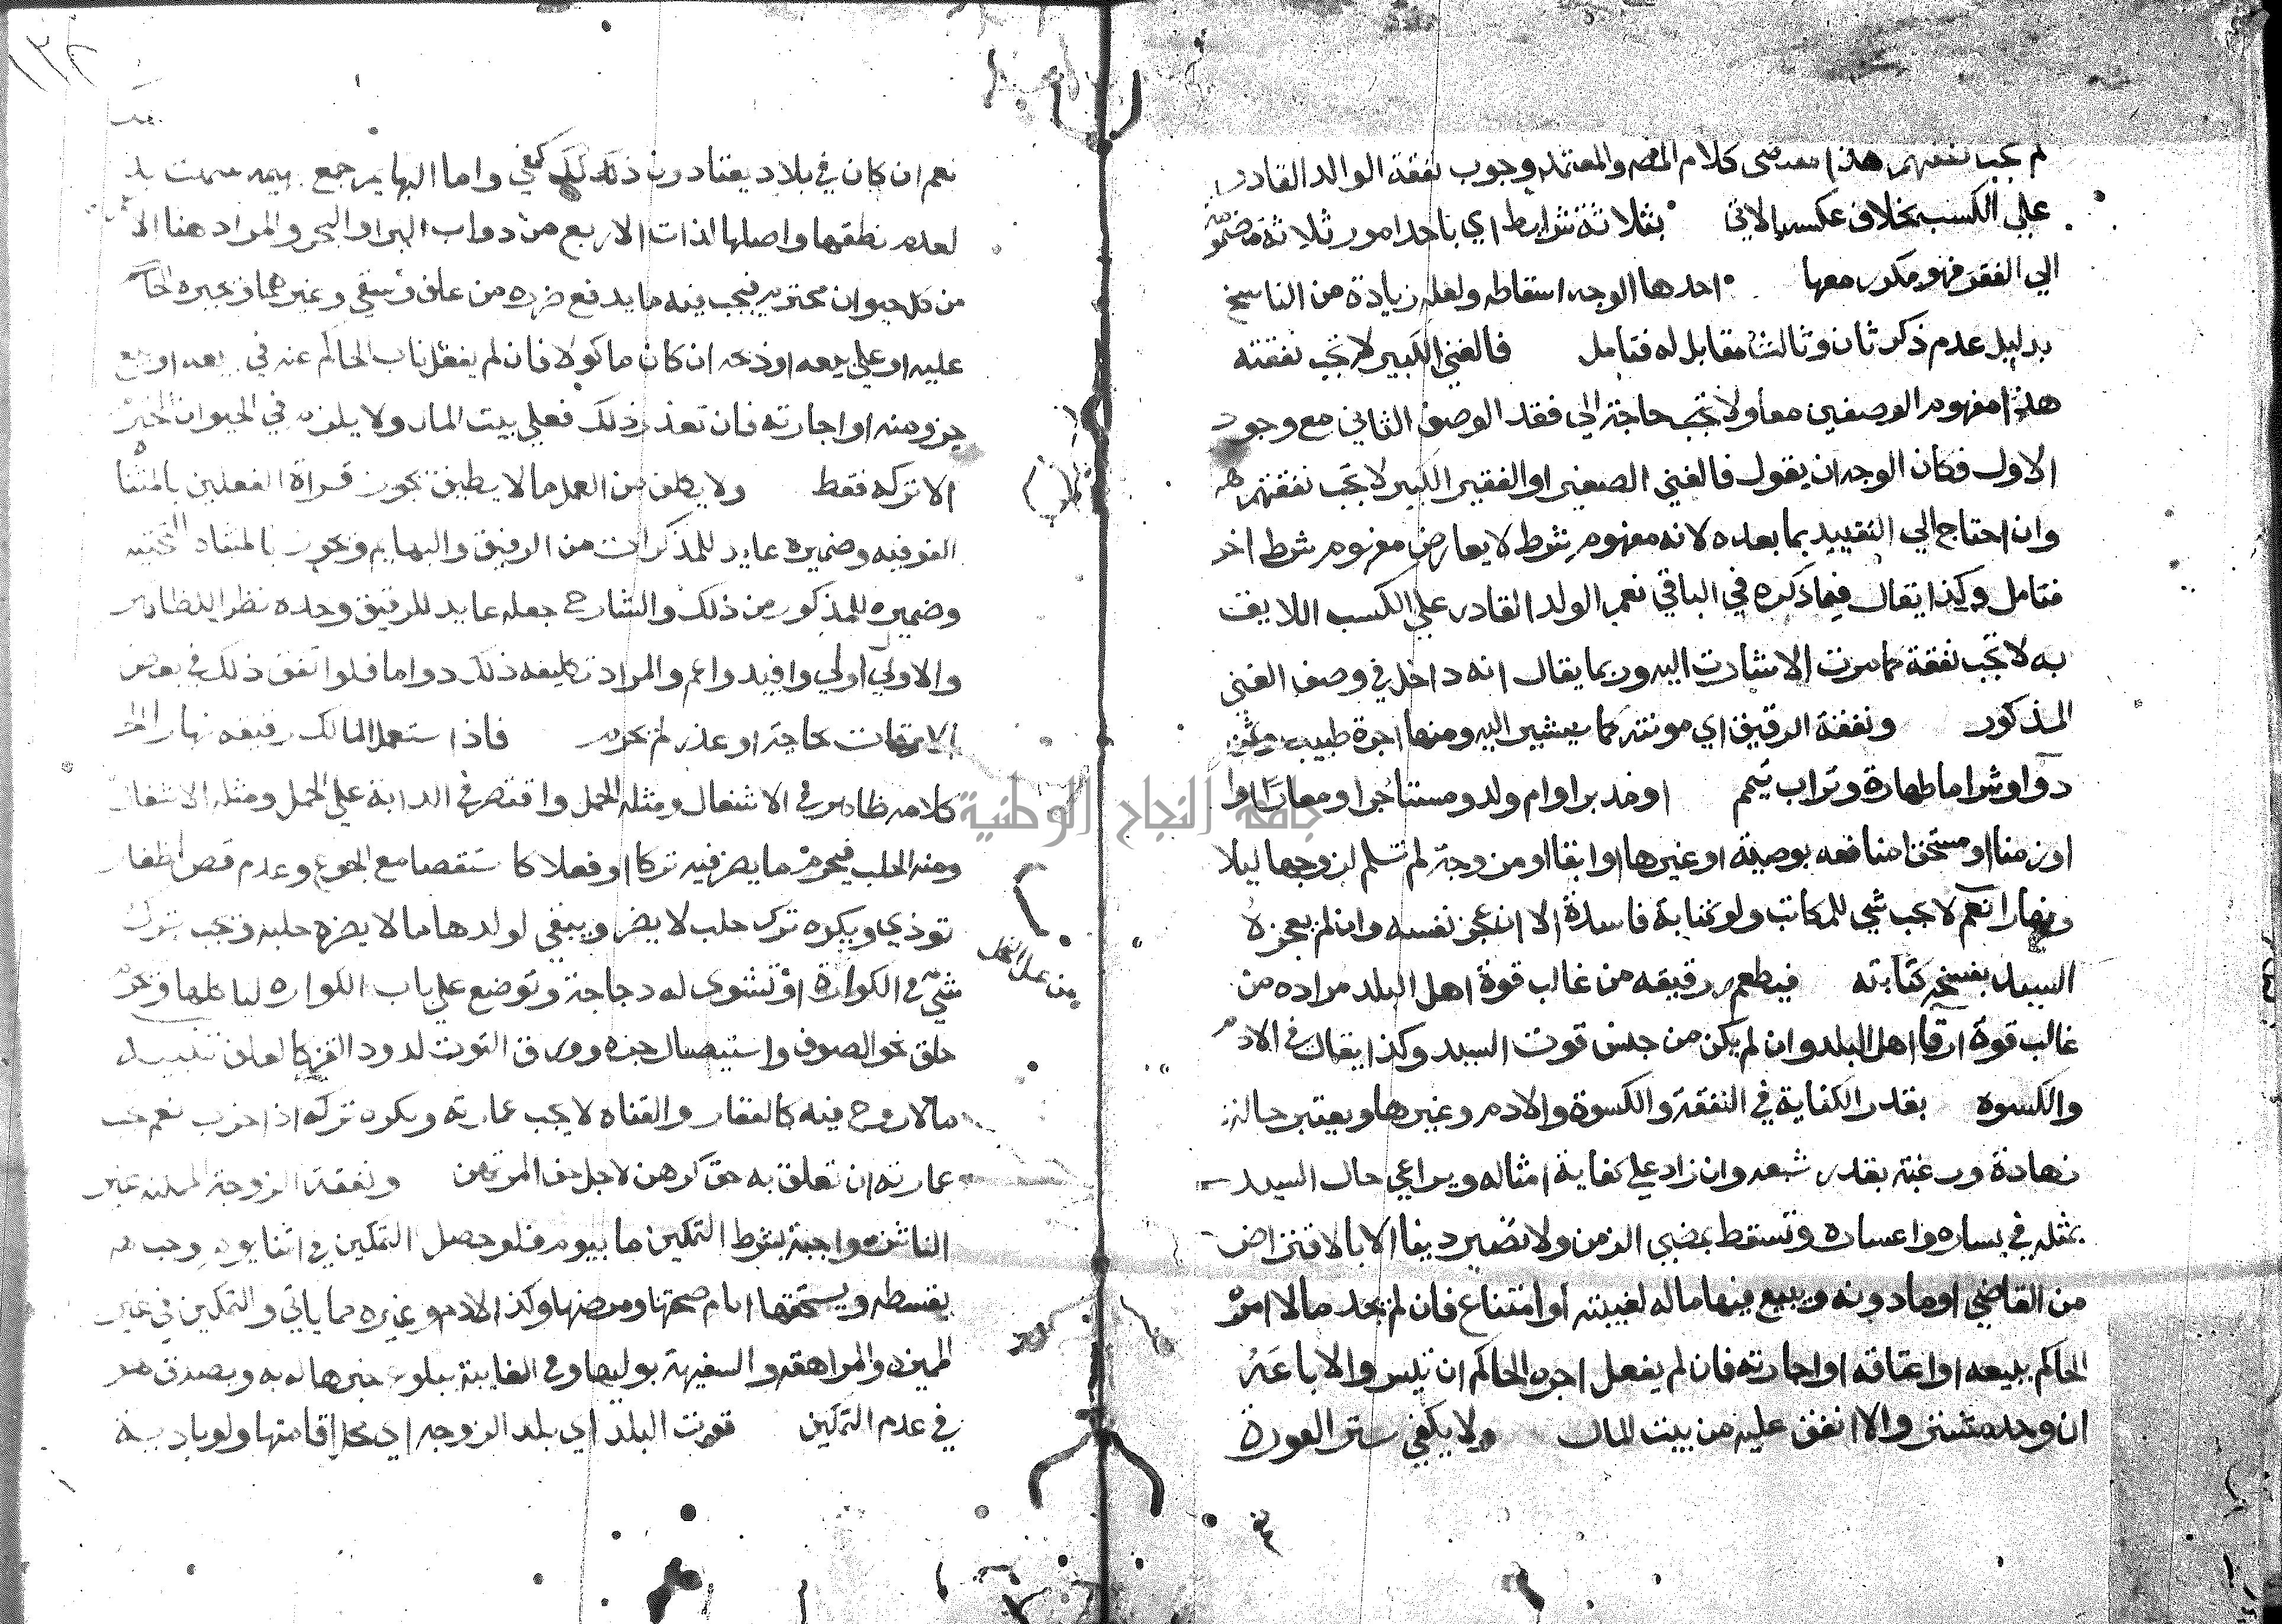 لم تجب نفقتهم هذا مقتضى كلام المصـ والمعتمد وجوب نفقة الوالد القادر
علي الكسب بخلاف عكسه الاتي بثلاثة شرايط اي باحد امور ثلاثة مضمو
الي الفقر فهو مكرر معها احدها الوجه اسقاطه ولعله زيادة من الناسخ
بدليل عدم ذكر ثان وثالث مقابل له فتامل فالغني الكبير لا تجب نفقته
هذا مفهوم الوصفين معا ولا حاجة الي فقد الوصف الثاني مع وجود
الاول فكان الوجه ان يقول فالغني الصغير او الفقير الكبير لا تجب نفقتهم
وان احتاج الي التقييد بما بعده لانه مفهوم شرط لا يعارض مفهوم شرط اخر
فتامل وكذا يقال فيما ذكره في الباقي نعم الولد القادر علي الكسب اللايق
به لا تجب نفقة كما مرت الاشارت اليه وربما يقال انه داخل في وصف الغني
المذكور ونفقة الرقيق اي مونته كما يشير اليه ومنها اجرة طبيب وثمن
دوا وشرا ما طهارة وتراب تيمم او مدبرا وام ولد ومستاجرا ومعارا وا
او زمنا او مستحق منافعه بوصية او غيرها او ابقا او من وجة لم تسلم لزوجها ليلا
ونهارا نعم لا يجب شي للمكاتب ولو كتابة فاسدة الا ان عجز نفسه وان لم يعجزه
السيد بفسخ كتابته فيطعم رقيقه من غالب قوة اهل البلد مراده من
غالب قوة ارقا اهل البلد وان لم يكن من جنس قوت السيد وكذا يقال في الادم
والكسوه بقدر الكفاية في النفقة والكسوة والادم وغيرها ويعتبر حاله
زهادة ورغبة بقدر شبعه وان زاد علي كفاية امثاله ويراعي حال السيد
بمثله في يساره واعساره وتسقط بمضي الزمن ولا تصير دينا الا بالاقتراض
من القاضي او ماذونه ويبيع فيها ماله لغيبته او امتناع فان لم يجد مالا امره
الحاكم ببيعه او اعتاقه او اجارته فان لم يفعل اجره الحاكم ان تيسر والا باعه
ان وجد مشتر والا انفق عليه من بيت المال ولا يكفي ستر العورة
١٣٢
نعم ان كان في بلاد يعتادون ذلك كفي واما البهايم جمع بهيمة سميت بذ
لعدم نطقها واصلها لذات الاربع من دواب البر او البحر والمراد هنا الا
من كل حيوان محترم فيجب فيه ما يدفع ضرره من علف وسقي وغيرهما ويجبره الحاكم
عليه او علي بيعه او ذبحه ان كان ماكولا فان لم يفعل ناب الحاكم عنه في بيعه او بيع
جزو منه او اجارته فان تعذر ذلك فعلي بيت المال ولا يلزمه في الحيوان
الا تركه فقط ولا يكلف من العمل ما لا يطيق يجوز قراة الفعلين بالمثنا
الفوقية وضميره عايد للمذكرات من الرقيق والبهايم ويجوز بالمثناه التحتية
وضميره للمذكور من ذلك والشارح جعله عايد للرقيق وحده نظر اللظاهر
والاولي اولي وافيد واعم والمراد تكليفه ذلك دواما فلو اتفق ذلك في بعض
الاوقات لحاجة او عذر لم يحرم فاذا استعمل المالك رقيقه نهارا الخ
كلامه ظاهر في الاشغال ومثله الحمل واقتصر في الدابة علي الحمل ومثله الاشغال
ومنه الحلب فيحرم ما يضر فيه تركا او فعلا كاستقصا مع الجوع وعدم قص اظفار
توذي ويكره ترك حلب لا يضر ويبقي لولدها ما لا يضره حلبه ويجب ترك
شي في الكوارة او تشوي له دجاجة وتوضع علي باب الكواره لياكلها ويحرم
من عسل النحل
حلق نحو الصوف واستيصال جزه وورق التوت لدود القز كالعلف تنبيه
ما لا روح فيه كالعقار والقناه لا يجب عمارته ويكره تركه اذا خرب نعم تجب
عمارته ان تعلق به حق كرهن لاجل حق المرتهن ونفقة الزوجة الممكنة غير
الناشزه واجبة بشرط التمكين ما بيوم فلو حصل التمكين في اثنا يوم وجبت
بقسطه ويستحقها ايام صحتها ومرضها وكذا الادم وغيره مما ياتي والتمكين في غير
المميزه والمراهقة والسفيهة بوليها وفي الغايبة ببلوغ خبرها له به ويصدق هو
في عدم التمكين قوت البلد اي بلد الزوجه اي محل اقامتها ولو بادية
جامعة النجاح الوطنية